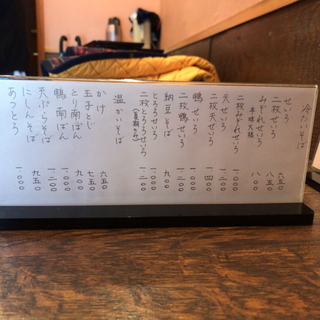 冷たいそば
せいろ 六五〇
二枚せいろ 八五〇
みぞれせいろ 八〇〇
二枚みぞれせいろ 一〇〇〇
天せいろ 一二〇〇
二枚天せいろ 一四〇〇
鴨せいろ 一〇〇〇
二枚鴨せいろ 一二〇〇
納豆そば 九〇〇
とろろせいろ 一〇〇〇
二枚とろろせいろ 一二〇〇
温かいそば
かけ 六五〇
玉子とじ 七五〇
とり南ばん 九〇〇
鴨南ばん 一〇〇〇
天ぷらそば 一二〇〇
にしんそば 九五〇
あつもり 一〇〇